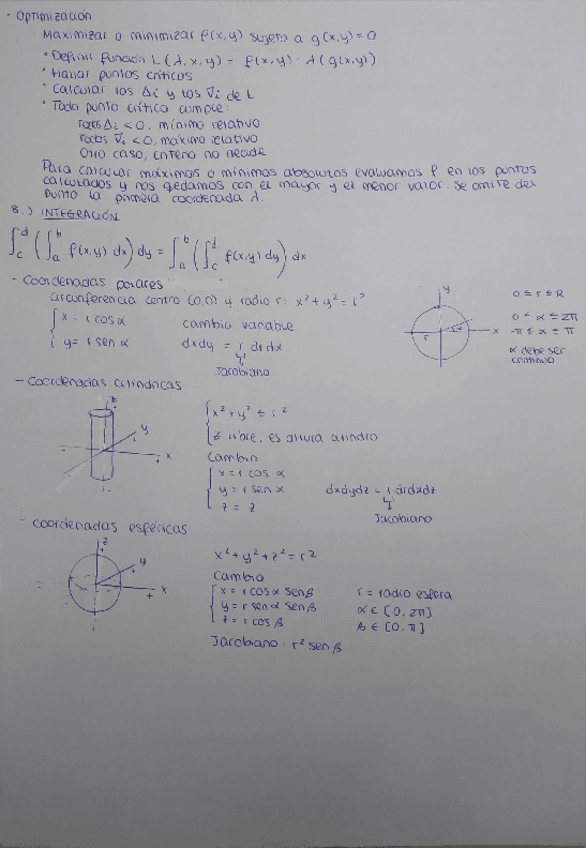 - Optimización
Maximizar o minimizar f(x,y) sujeto a g(x,y)=0
· Definir función L(λ,x,y) = f(x,y) - λ(g(x,y))
· Hallar puntos críticos
· Calcular los Δi y los ∇i de L
· Todo punto crítico cumple:
Todos Δi < 0, mínimo relativo
Todos ∇i < 0, máximo relativo
Otro caso, criterio no decide
Para calcular máximos o mínimos absolutos evaluamos f en los puntos
calculados y nos qedamos con el mayor y el menor valor. Se omite del
punto la primera coordenada λ.
8.) INTEGRACIÓN
∫_c^d (∫_a^b f(x,y) dx) dy = ∫_a^b (∫_c^d f(x,y) dy) dx
- Coordenadas polares
Circunferencia centro (0,0) y radio r: x²+y²=r²
x = r cos α
cambio variable
y = r sen α
dxdy = r drdα
Jacobiano
y
x
r
α
0 ≤ r ≤ R
0 ≤ α ≤ 2π
-π ≤ α ≤ π
α debe ser
continuo
- Coordenadas cilíndricas
z
y
x
x²+y² ≤ r²
z libre, es altura cilindro
Cambio
x = r cos α
y = r sen α
z = z
dxdydz = r drdαdz
Jacobiano
- Coordenadas esféricas
z
y
x
+
x²+y²+z²=r²
Cambio
x = r cosα senβ
y = r senα senβ
z = r cosβ
r = radio esfera
α ∈ [0, 2π]
β ∈ [0, π]
Jacobiano: r² senβ